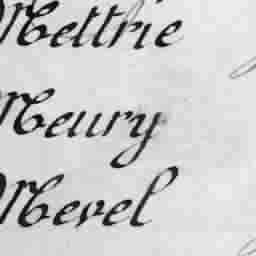 Mettrie
Meury
Mevel